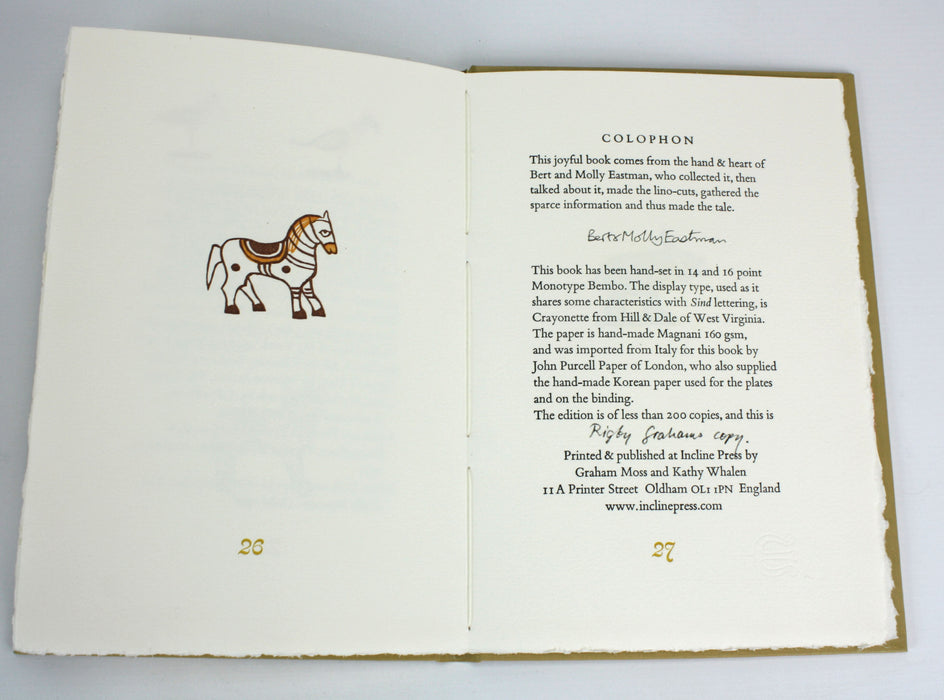 COLOPHON
This joyful book comes from the hand & heart of
Bert and Molly Eastman, who collected it, then
talked about it, made the lino-cuts, gathered the
sparce information and thus made the tale.
Bert & Molly Eastman
This book has been hand-set in 14 and 16 point
Monotype Bembo. The display type, used as it
shares some characteristics with Sind lettering, is
Crayonette from Hill & Dale of West Virginia.
The paper is hand-made Magnani 160 gsm,
and was imported from Italy for this book by
John Purcell Paper of London, who also supplied
the hand-made Korean paper used for the plates
and on the binding.
The edition is of less than 200 copies, and this is
Rigby Grahams copy.
Printed & published at Incline Press by
Graham Moss and Kathy Whalen
11A Printer Street Oldham OL1 1PN England
www.inclinepress.com
26
27